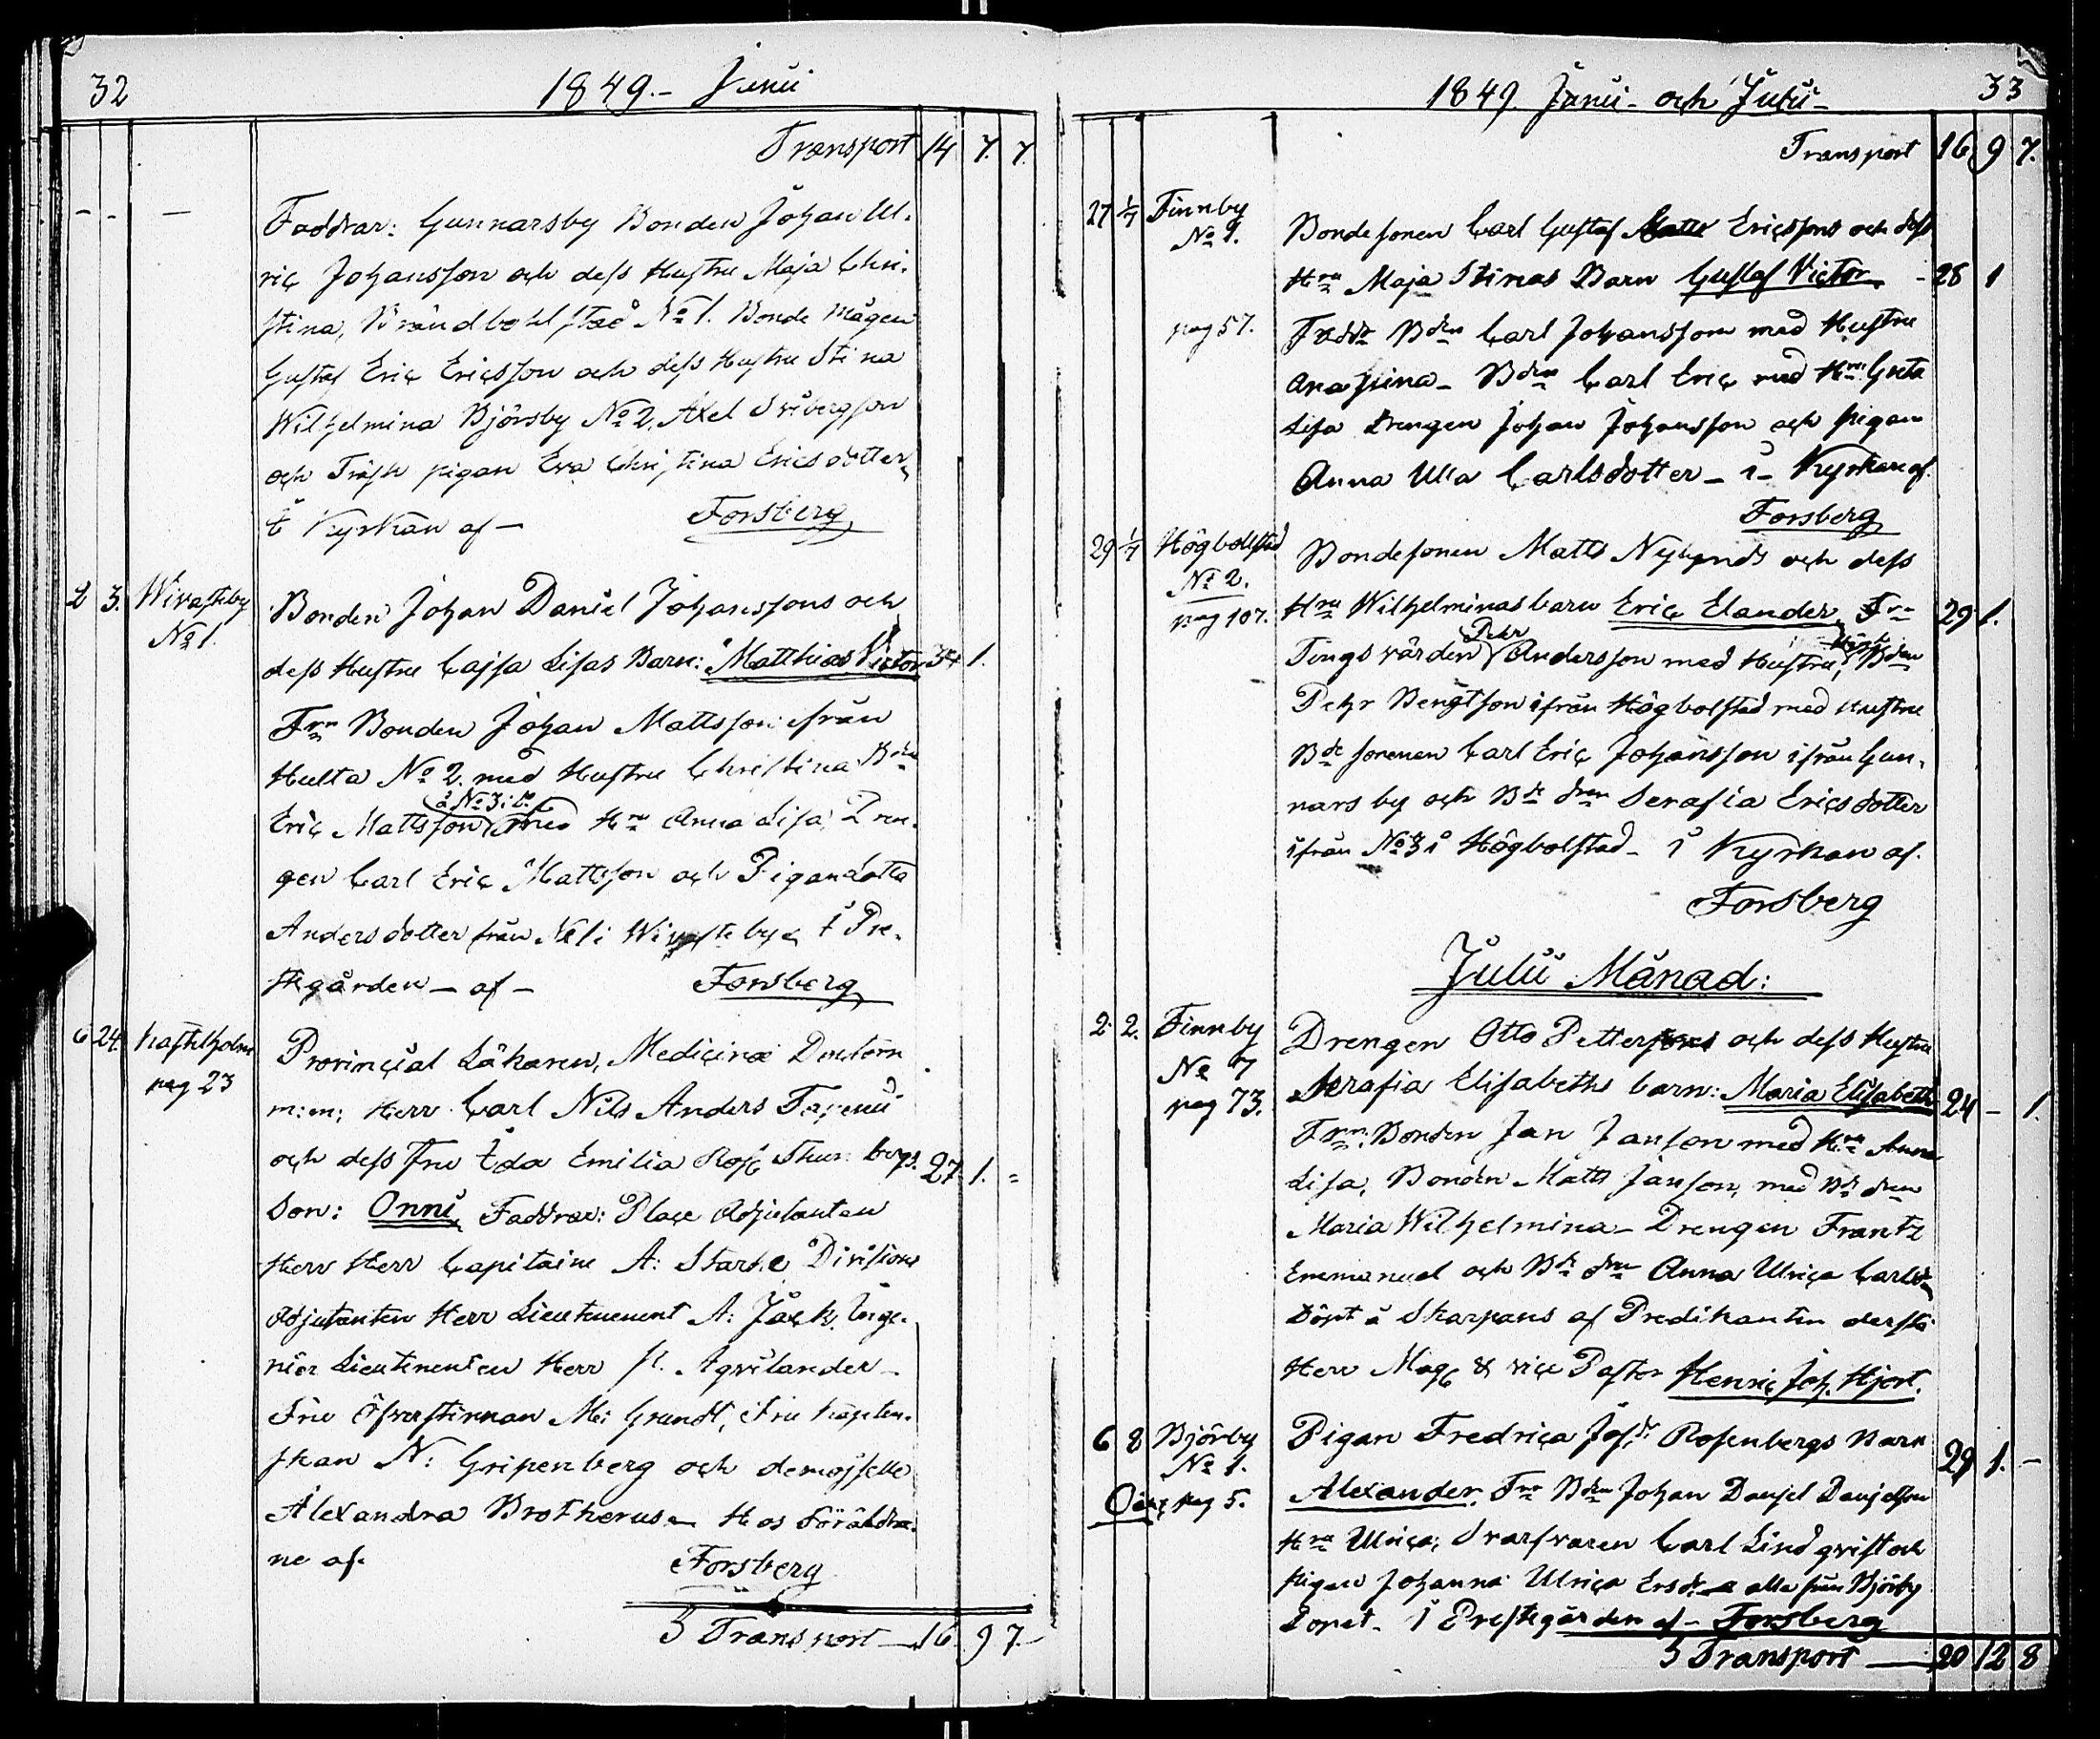 32
1849.- Junii
Transport 14 7. 7.
- - -
Faddrar: Gunnarsby Bonden Johan Ul-
ric Johansson och dess Hustru Maja Chri-
stina, Brändbohlstad No 1. Bonde mågen
Gustaf Eric Ericsson och dess Hustru Stina
Wilhelmina Björsby No 2. Axel Sviberg son
och Träsk pigan Eva Christina Ericsdotter
i Kyrkan af - Forsberg
2 3. Wivasteby Bonden Johan Daniel Johanssons och
No 1.
dess Hustru Cajsa Lisas Barn: Matthias Victor 34 1.
Frn Bonden Johan Mattsson ifrån
Hulta No 2. med Hustru Christina Bdn
å No 3 i do
Eric Mattsson med Hru Anna Lisa, Dren-
gen Carl Eric Mattsson och Pigan Lotta
Andersdotter från No 1 i Wivasteby i Pre-
stgården - af - Forsberg
6 24. Kastelholm Provincial Läkaren, Medicinæ Doctorn
pag 23
m:m; Herr Carl Nils Anders
och dess Fru Eda Emilia Rosc 27. 1. =
Son: Onni Faddrar: Place Adjutanten
Herr Herr Capitaine A: Starke, Divisions
Adjutanten Herr Lieutenent A: Jäck, Inge-
niör Lieutenenten Herr Aqvilander -
Fru Öfverstinnan M: Grundt, Fru Kapten-
skan N: Gripenberg och demoiselle
Alexandra Brotherus - Hos Föräldra-
ne af. Forsberg
5 Transport - 16 9 7.-
33
1849. Junii- och Julii-
Transport 16 9 7.
27 1/7 Finnby Bondesonen Carl Gustaf Ericssons och dess
No 9.
Hru Maja Stinas Barn Gustaf Victor - 28 1
pag 57. Faddr Bden Carl Johansson med Hustru
Ana Stina - Bden Carl Eric med Hru Greta
Lisa Drengen Johan Johansson och pigan
Anna Ulla Carlsdotter - i - Kyrkan af.
Forsberg
29 1/7 Högbolstad Bondesonen Matts Nylunds och dess
No 2.
pag 107. Hru Wilhelminas barn Eric Elander, Frn 29 1.
Pehr
Tingsvärden Andersson med Hustru, Bden
Pehr Bengtson ifrån Högbolstad med Hustru
Bde sonenen Carl Eric Johansson ifrån Gun-
narsby och Bde dren Serafia Ericsdotter
ifrån No 3 i Högbolstad - i Kyrkan af.
Forsberg
Julii Månad:
2. 2. Finnby Drengen Otto Pettersons och dess Hustru
No 7
pag 73. Serafia Elisabeths barn: Maria Elisabeth 24 - 1.
Frn: Bonden Jan Janson med Hru Anna
Lisa, Bonden Matts Janson, med Bde dren
Maria Wilhelmina - Drengen Frantz
Emmanuel och Bde dren Anna Ulrica Carlsd.
Döpt å Skarpans af Predikanten derstä
Herr Mag & vice Pastor Henric Joh. Hjort.
6 8 Björby Pigan Fredrica Rosenbergs Barn 29 1. -
No 1.
Oäkt pag 5. Alexander, Frn Bden Johan Danjel Danjelson
Hru Ulrica; Svarfvaren Carl Lindqvist och
pigan Johanna Ulrica Ersdr alla från Björby
Döpet - i Prestegården af - Forsberg
5 Transport - 20 12 8